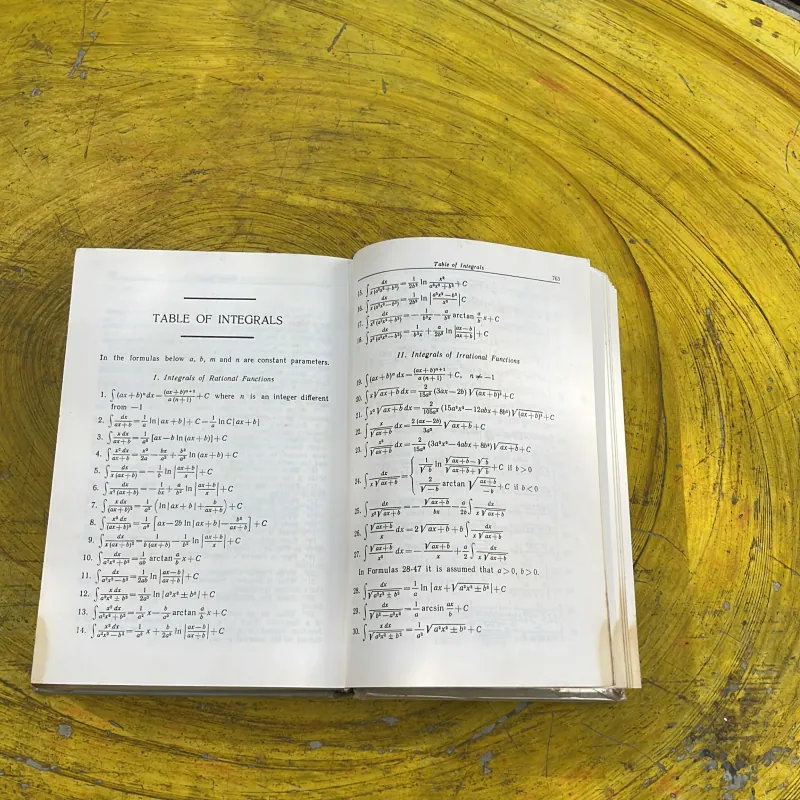 TABLE OF INTEGRALS
In the formulas below a, b, m and n are constant parameters.
I. Integrals of Rational Functions
1. ∫(ax+b)ⁿ dx = (ax+b)ⁿ⁺¹/a(n+1) + C where n is an integer different
from −1
2. ∫dx/(ax+b) = 1/a ln|ax+b| + C = 1/a ln C|ax+b|
3. ∫x dx/(ax+b) = 1/a² [ax−b ln(ax+b)] + C
4. ∫x² dx/(ax+b) = x²/2a − bx/a² + b²/a³ ln(ax+b) + C
5. ∫dx/x(ax+b) = −1/b ln|(ax+b)/x| + C
6. ∫dx/x²(ax+b) = −1/bx + a/b² ln|(ax+b)/x| + C
7. ∫x dx/(ax+b)² = 1/a² (ln|ax+b| + b/(ax+b)) + C
8. ∫x² dx/(ax+b)² = 1/a³ [ax−2b ln|ax+b| − b²/(ax+b)] + C
9. ∫dx/x(ax+b)² = 1/b(ax+b) − 1/b² ln|(ax+b)/x| + C
10. ∫dx/(a²x²+b²) = 1/ab arctan a/b x + C
11. ∫dx/(a²x²−b²) = 1/2ab ln|(ax−b)/(ax+b)| + C
12. ∫x dx/(a²x²±b²) = 1/2a² ln|a²x²±b²| + C
13. ∫x² dx/(a²x²+b²) = 1/a² x − b/a³ arctan a/b x + C
14. ∫x² dx/(a²x²−b²) = 1/a² x + b/2a³ ln|(ax−b)/(ax+b)| + C
Table of Integrals
15. ∫dx/x(a²x²+b²) = 1/2b² ln x²/(a²x²+b²) + C
16. ∫dx/x(a²x²−b²) = 1/2b² ln|(a²x²−b²)/x²| + C
17. ∫dx/x²(a²x²+b²) = −1/b²x − a/b³ arctan a/b x + C
18. ∫dx/x²(a²x²−b²) = 1/b²x + a/2b³ ln|(ax−b)/(ax+b)| + C
II. Integrals of Irrational Functions
19. ∫(ax+b)ⁿ dx = (ax+b)ⁿ⁺¹/a(n+1) + C, n ≠ −1
20. ∫x√(ax+b) dx = 2/15a² (3ax−2b) √(ax+b)³ + C
21. ∫x²√(ax+b) dx = 2/105a³ (15a²x²−12abx+8b²) √(ax+b)³ + C
22. ∫x/√(ax+b) dx = 2(ax−2b)/3a² √(ax+b) + C
23. ∫x²/√(ax+b) dx = 2/15a³ (3a²x²−4abx+8b²) √(ax+b) + C
24. ∫dx/x√(ax+b) = { 1/√b ln (√(ax+b)−√b)/(√(ax+b)+√b) + C if b>0
2/√−b arctan √((ax+b)/−b) + C if b<0
25. ∫dx/x²√(ax+b) = −√(ax+b)/bx − a/2b ∫dx/x√(ax+b)
26. ∫√(ax+b)/x dx = 2√(ax+b) + b∫dx/x√(ax+b)
27. ∫√(ax+b)/x² dx = −√(ax+b)/x + a/2 ∫dx/x√(ax+b)
In Formulas 28-47 it is assumed that a>0, b>0.
28. ∫dx/√(a²x²±b²) = 1/a ln|ax+√(a²x²±b²)| + C
29. ∫dx/√(b²−a²x²) = 1/a arcsin ax/b + C
30. ∫x dx/√(a²x²±b²) = 1/a² √(a²x²±b²) + C